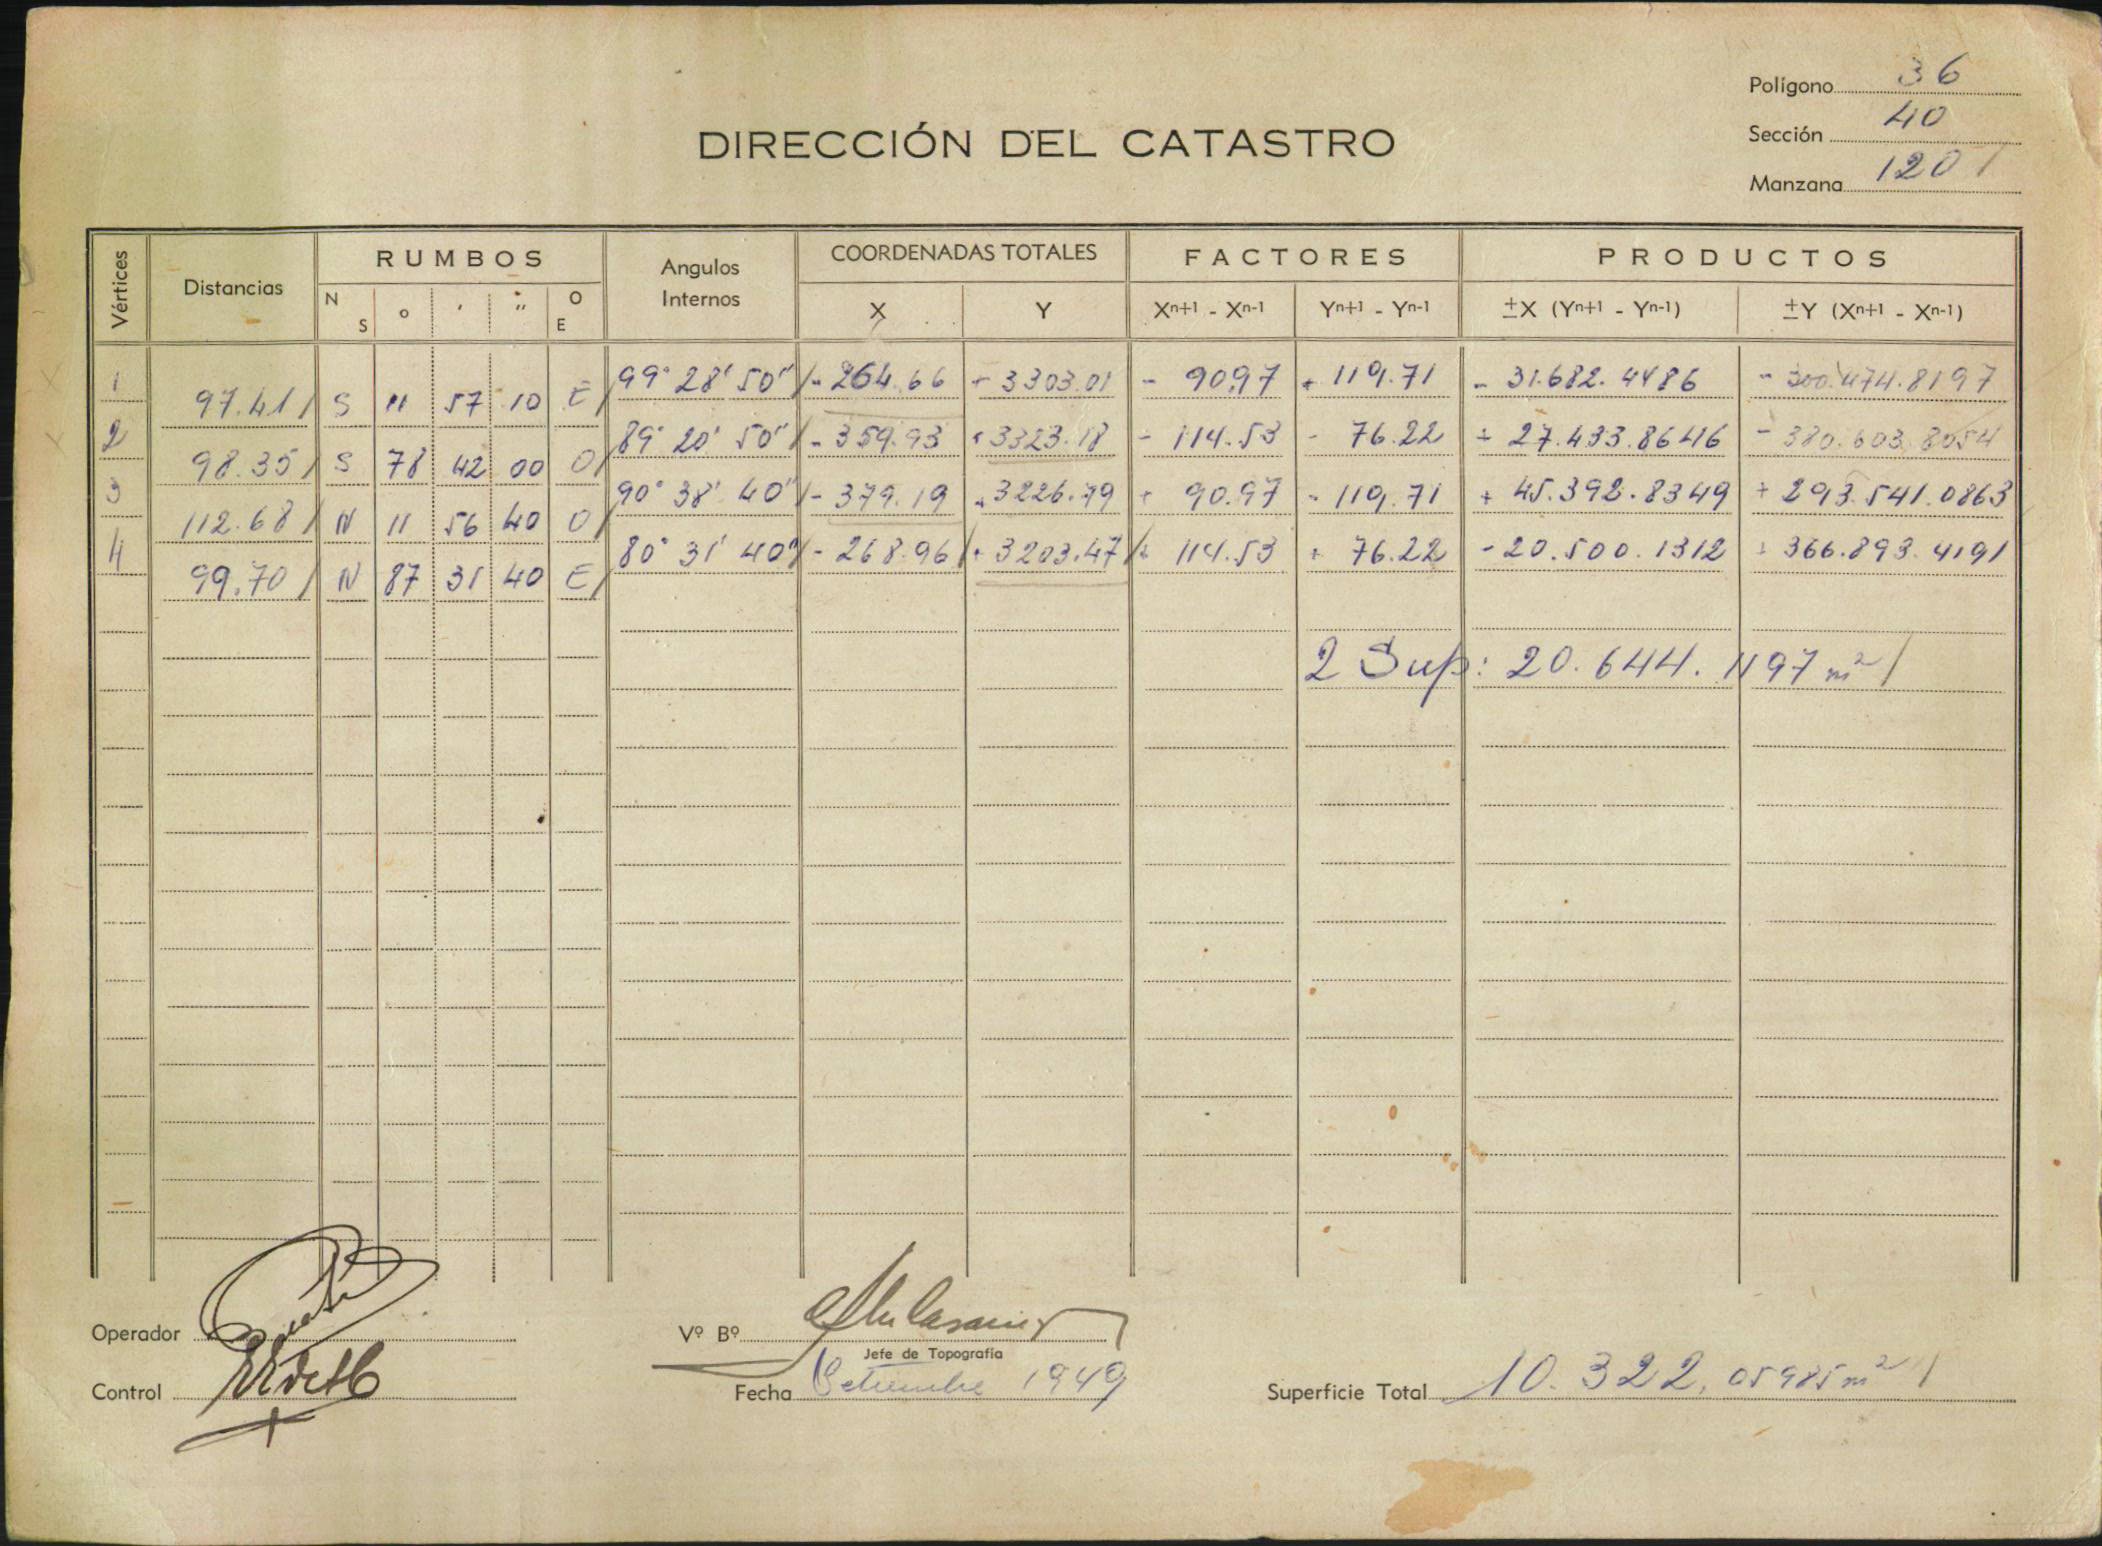 Polígono 36
DIRECCIÓN DEL CATASTRO
Sección 40
Manzana 120
Vértices Distancias RUMBOS Angulos Internos COORDENADAS TOTALES FACTORES PRODUCTOS
N S o ' " O E X Y Xn+1 - Xn-1 Yn+1 - Yn-1 ±X (Yn+1 - Yn-1) ±Y (Xn+1 - Xn-1)
1 99° 28' 50" - 264.66 + 3303.01 - 90.97 + 119.71 - 31.682.4486 - 300.474.8197
97.41 S 11 57 10 E
2 89° 20' 50" - 359.93 + 3323.18 - 114.53 - 76.22 + 27.433.8646 - 380.603.8054
98.35 S 78 42 00 O
3 90° 38' 40" - 379.19 + 3226.79 + 90.97 - 119.71 + 45.392.8349 + 293.541.0863
112.68 N 11 56 40 O
4 80° 31' 40" - 268.96 + 3203.47 + 114.53 + 76.22 - 20.500.1312 + 366.893.4191
99.70 N 87 31 40 E
2 Sup: 20.644.1197 m²
Operador
Vº Bº
Jefe de Topografía
Control
Fecha Setiembre 1949
Superficie Total 10.322,05985 m²